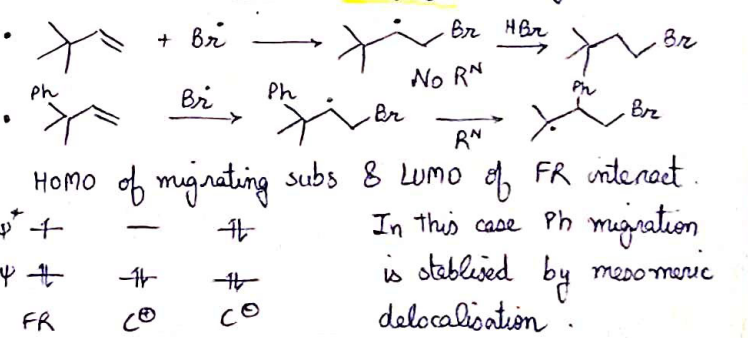 + Br• → Br HBr → Br
No Rᴺ
Ph Br• → Ph Br → Rᴺ Ph Br
HOMO of migrating subs & LUMO of FR interact.
ψ* In this case Ph migration
ψ is stablised by mesomeric
FR C⊕ C⊖ delocalisation.